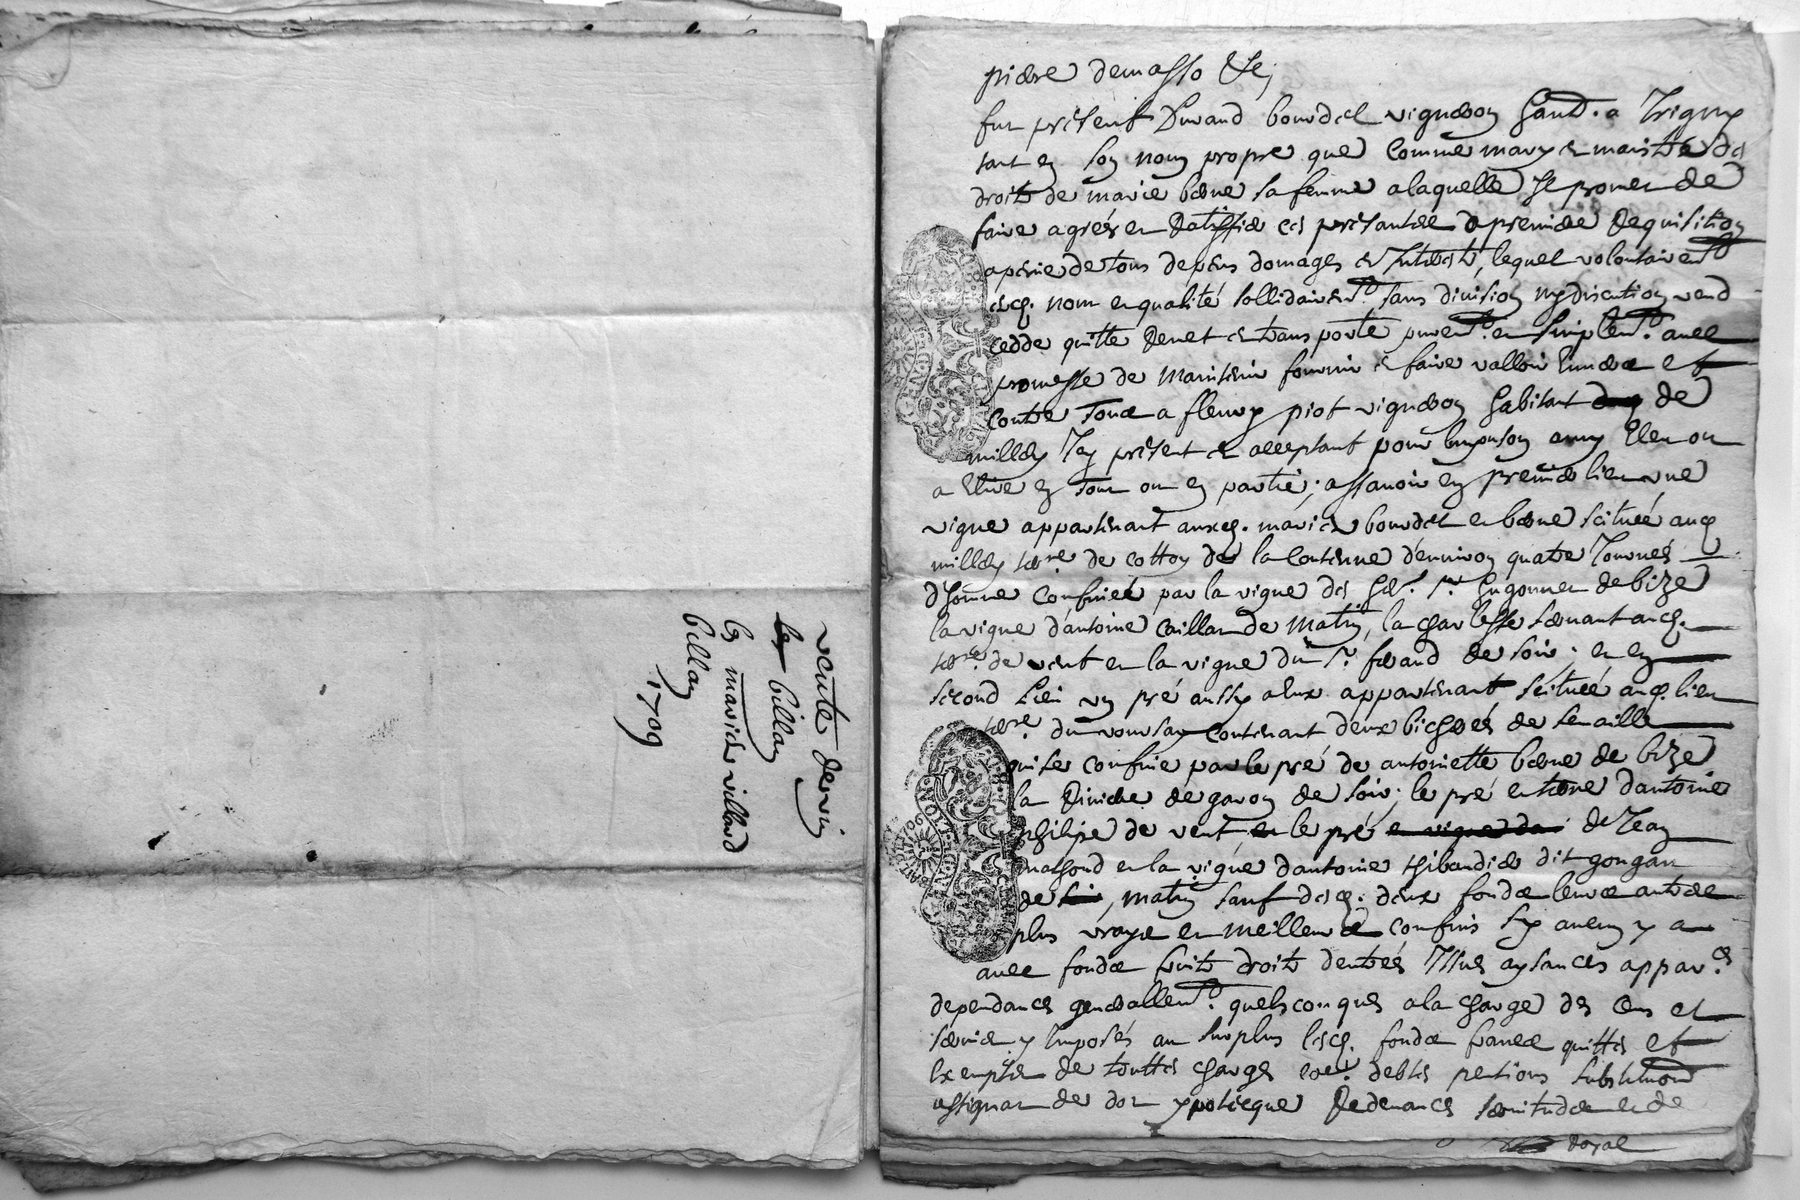 vente de vin
billay
les mariés villard
billay
1709
pierre demasso &c
fut présent Durand bourdel vigneron habit. a Irigny
tant en son nom propre que comme mary et maistre des
droits de marie bene sa femme a laquelle Il promet de
faire agréer et Ratiffier ces présantes a premiere Requisition
a peine de tous depens domages et Interests, lequel volontairemt
esq. nom et qualité sollidairemt. sans division ny discution vend
cedde quitte Remet et transporte puremt. et simplemt. avec
promesse de maintenir fournir et faire valloir Envers et
contre Tous a fleury piot vigneron habitant de
millery Icy présent et acceptant pour luy ou son amy Eleu ou
a Elire en Tout ou en partie; assavoir en premier lieu une
vigne appartenant auxq. mariés bourdel et bene scituée audq
millery terre. de cottoy de la contenue d'environ quatre Journés
d'homme confinée par la vigne des hers. sr. hugonnet de bize
la vigne d'antoine caillat de matin, la charlesse servant audq.
terre. de vent et la vigne du sr. feraud de soir; et en
second Lieu un pré aussy a Eux appartenant scituée auq. lieu
terre. du contenant deux bicherés de semaille
qui se confine par le pré de antoinette bene de bize
la Riviere de garon de soir; le pré et terre d'antoine
philipe de vent et le pré et vigne da de Jean
massond et la vigne dantoine thibaudier dit gongau
de soir, matin sauf desq. deux fonds leurs autres
plus vraye et meilleurs confins sy aucun y a
avec fonds fruits droits dentrées Issues aysances appar.ces
dependances generallemt. quelsconques a la charge des cens et
servis y Imposés au surplus lesq. fonds francs quittes et
Exempts de touttes charges debtes pentions substitution
assignat de dot ypotecque Redevances servitudes et de